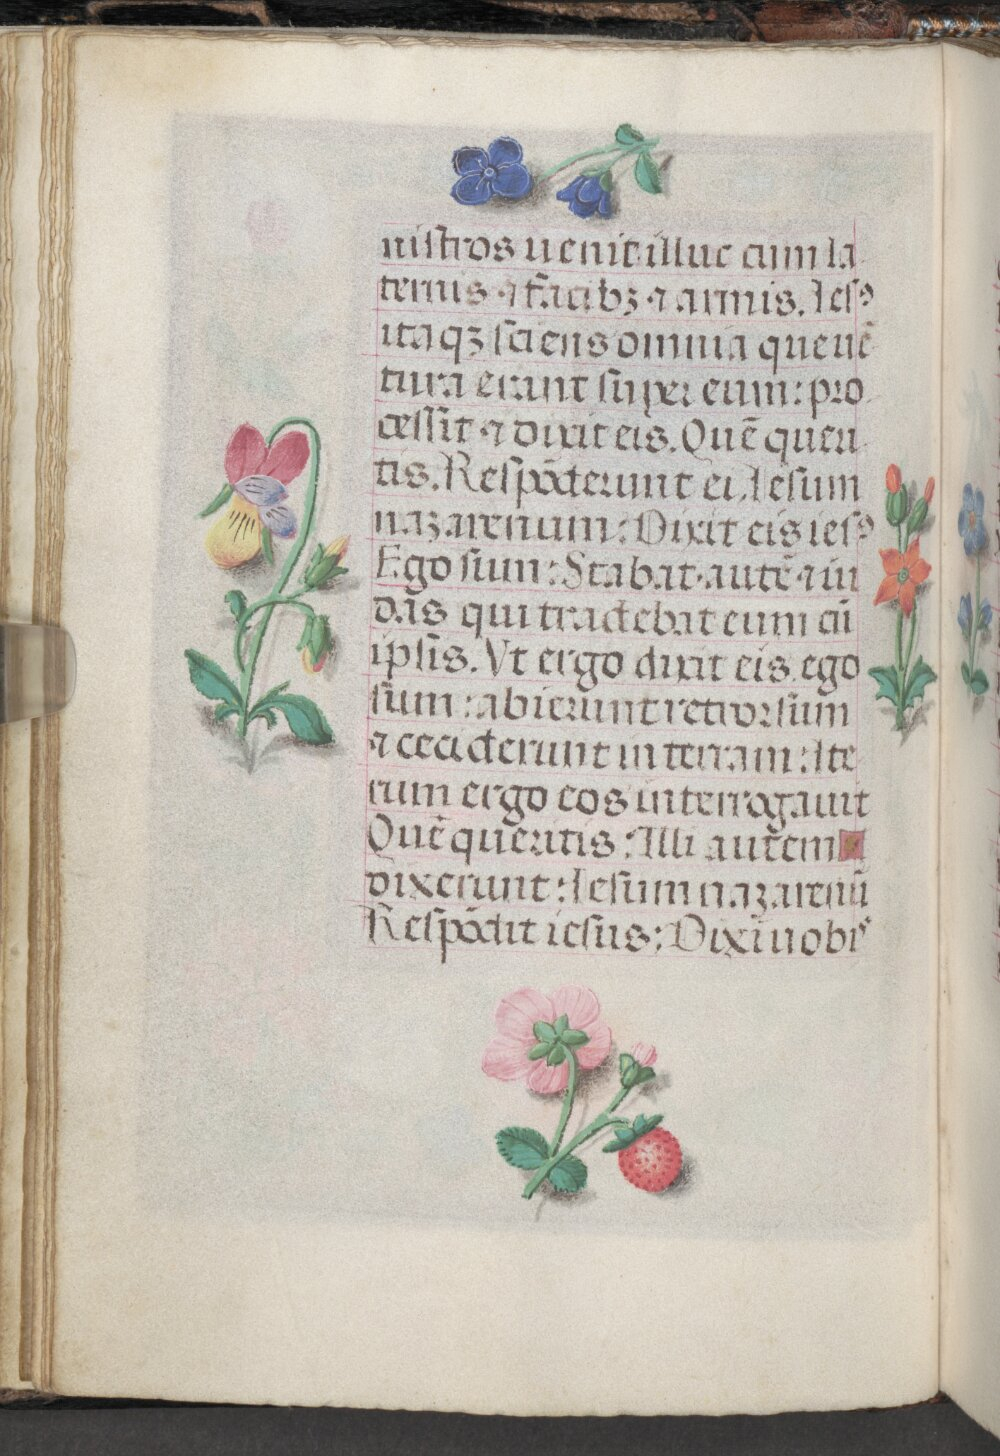 nistros uenit illuc cum la
ternis ⁊ facibꝫ ⁊ armis. Iesꝰ
itaqꝫ sciens omnia que uē
tura erant super eum: pro
cessit ⁊ dixit eis. Quē queri
tis. Respōderunt ei. Iesum
nazarenum: Dixit eis iesꝰ
Ego sum: Stabat autē ⁊ iu
das qui tradebat eum cū
ipsis. Vt ergo dixit eis ego
sum: abierunt retrorsum
⁊ ceciderunt in terram: Ite
rum ergo eos interrogauit
Quē queritis: Illi autem
dixerunt: Iesum nazarenū
Respōdit iesus: Dixi uobis